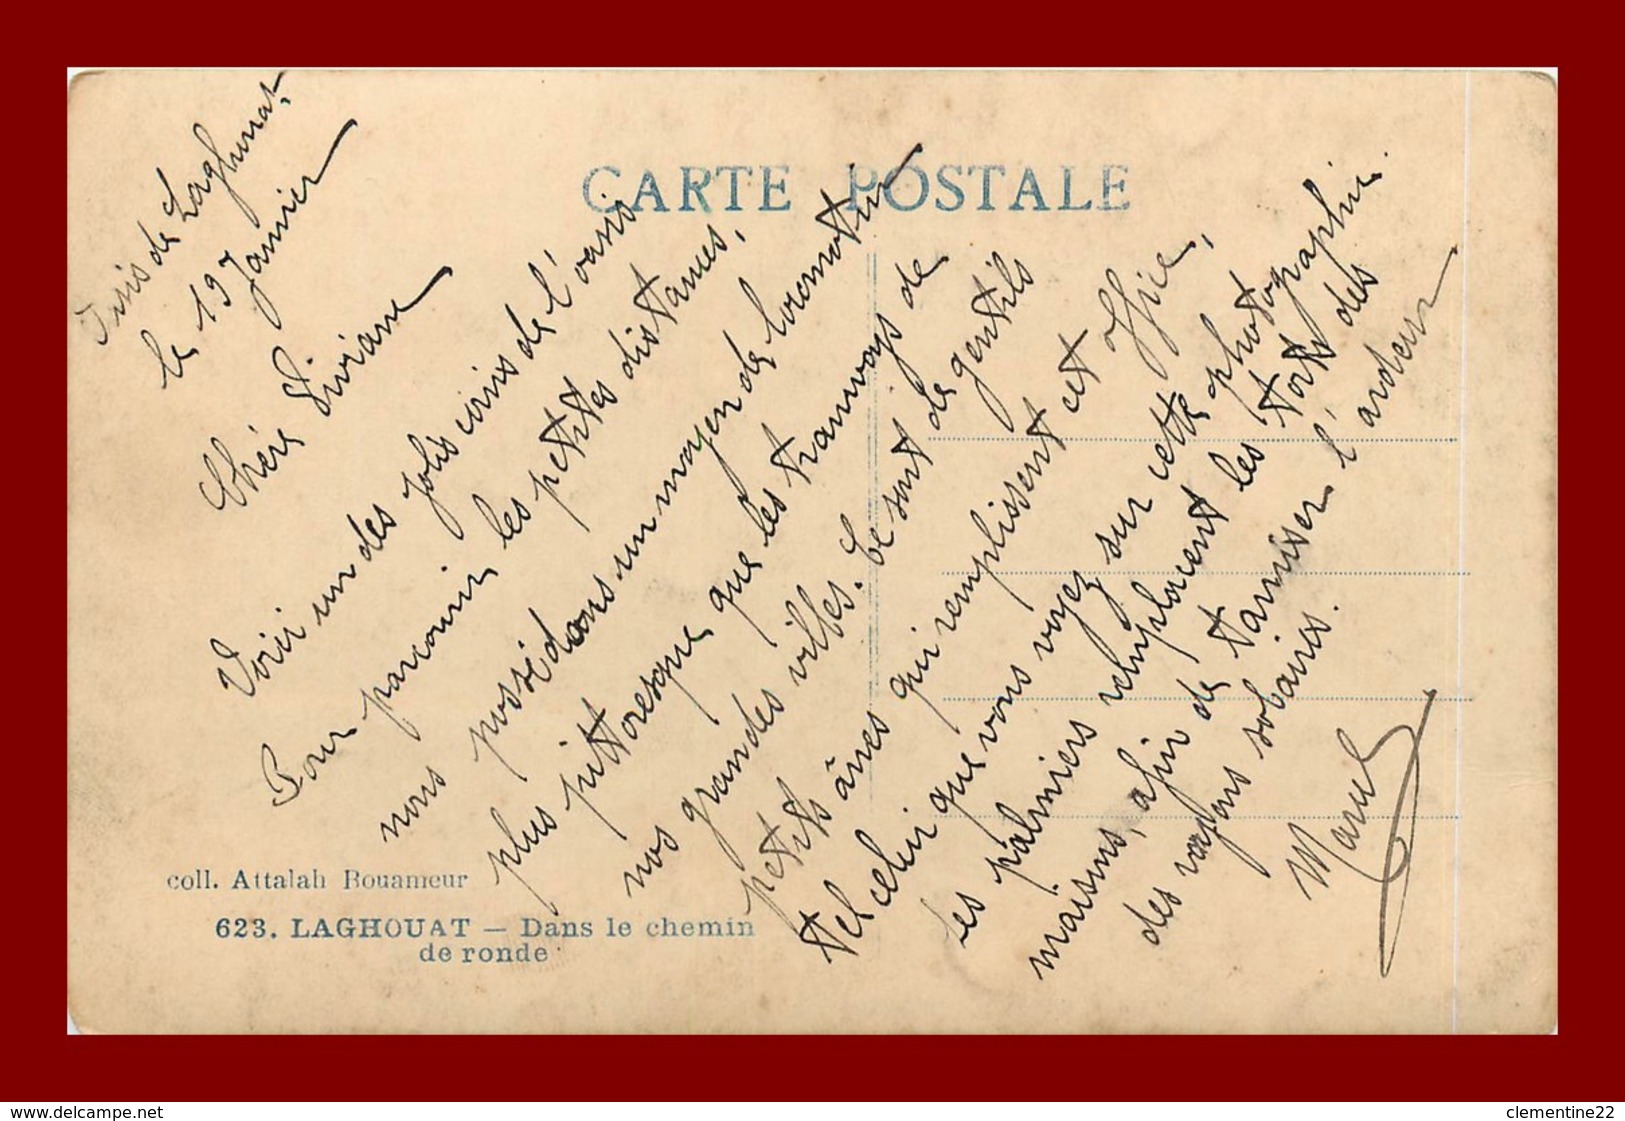 CARTE POSTALE
de Laghouat
le 19 Janvier
Chère Viviane
Voici un des jolis coins de l'oasis
Pour parcourir les petites distances,
nous possédons un moyen de locomotion
plus pittoresque que les tramways de
nos grandes villes. Ce sont de gentils
petits ânes qui remplissent cet office,
tel celui que vous voyez sur cette photographie.
Les palmiers remplacent les toits des
maisons, afin de tamiser l'ardeur
des rayons solaires.
Marcel
coll. Attalah Bouameur
623. LAGHOUAT — Dans le chemin
de ronde
www.delcampe.net
clementine22